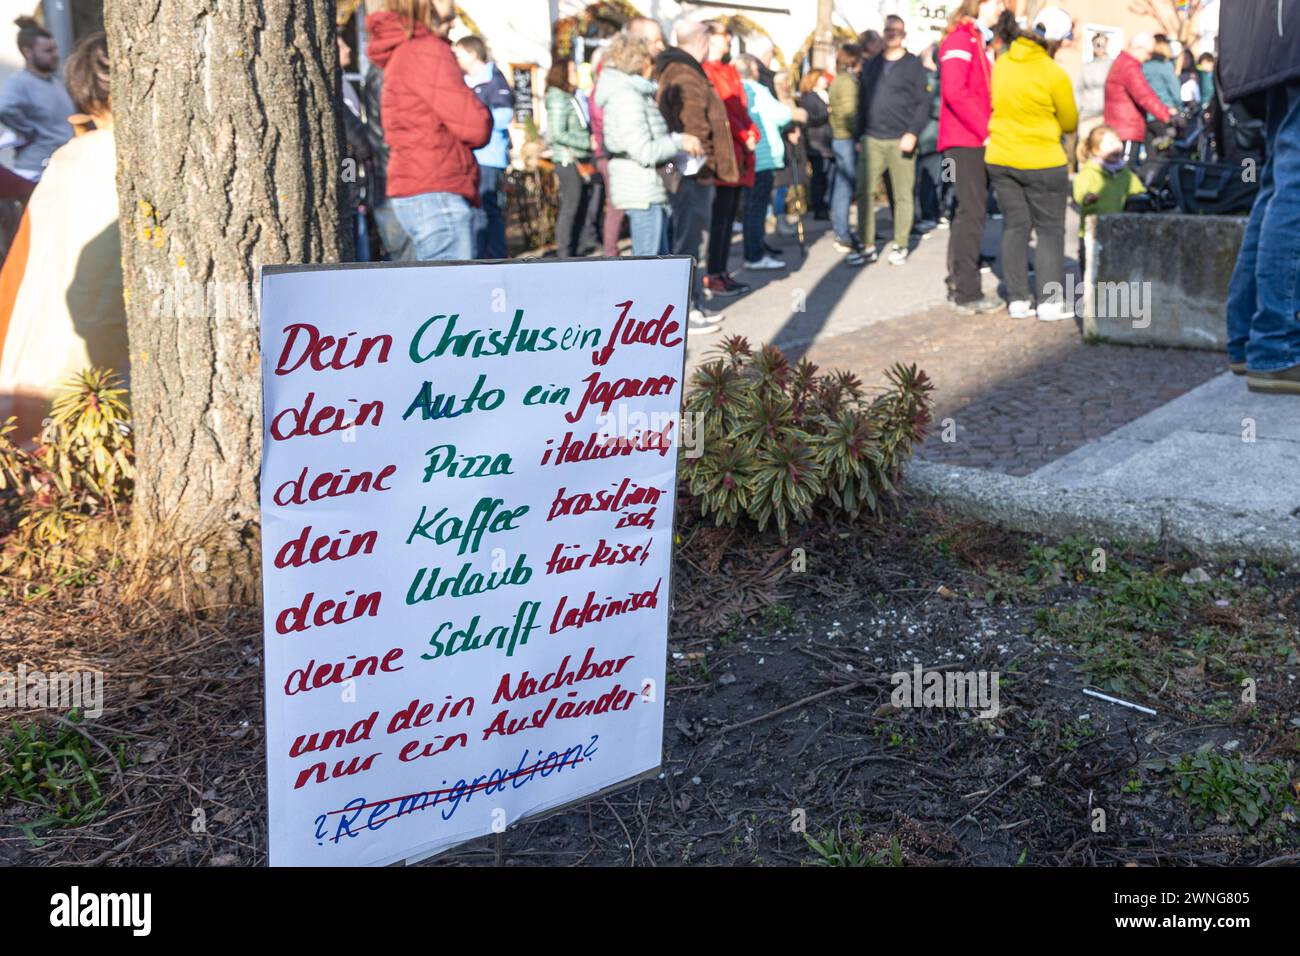 Dein Christus ein Jude
dein Auto ein Japaner
deine Pizza italienisch
dein Kaffee brasilian-
isch
dein Urlaub türkisch
deine Schrift lateinisch
und dein Nachbar
nur ein Ausländer?
? Remigration?
alamy
Image ID: 2WNG805
www.alamy.com